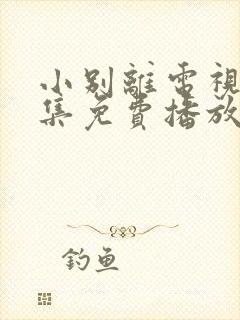 小别離電視
集免費播放
釣魚